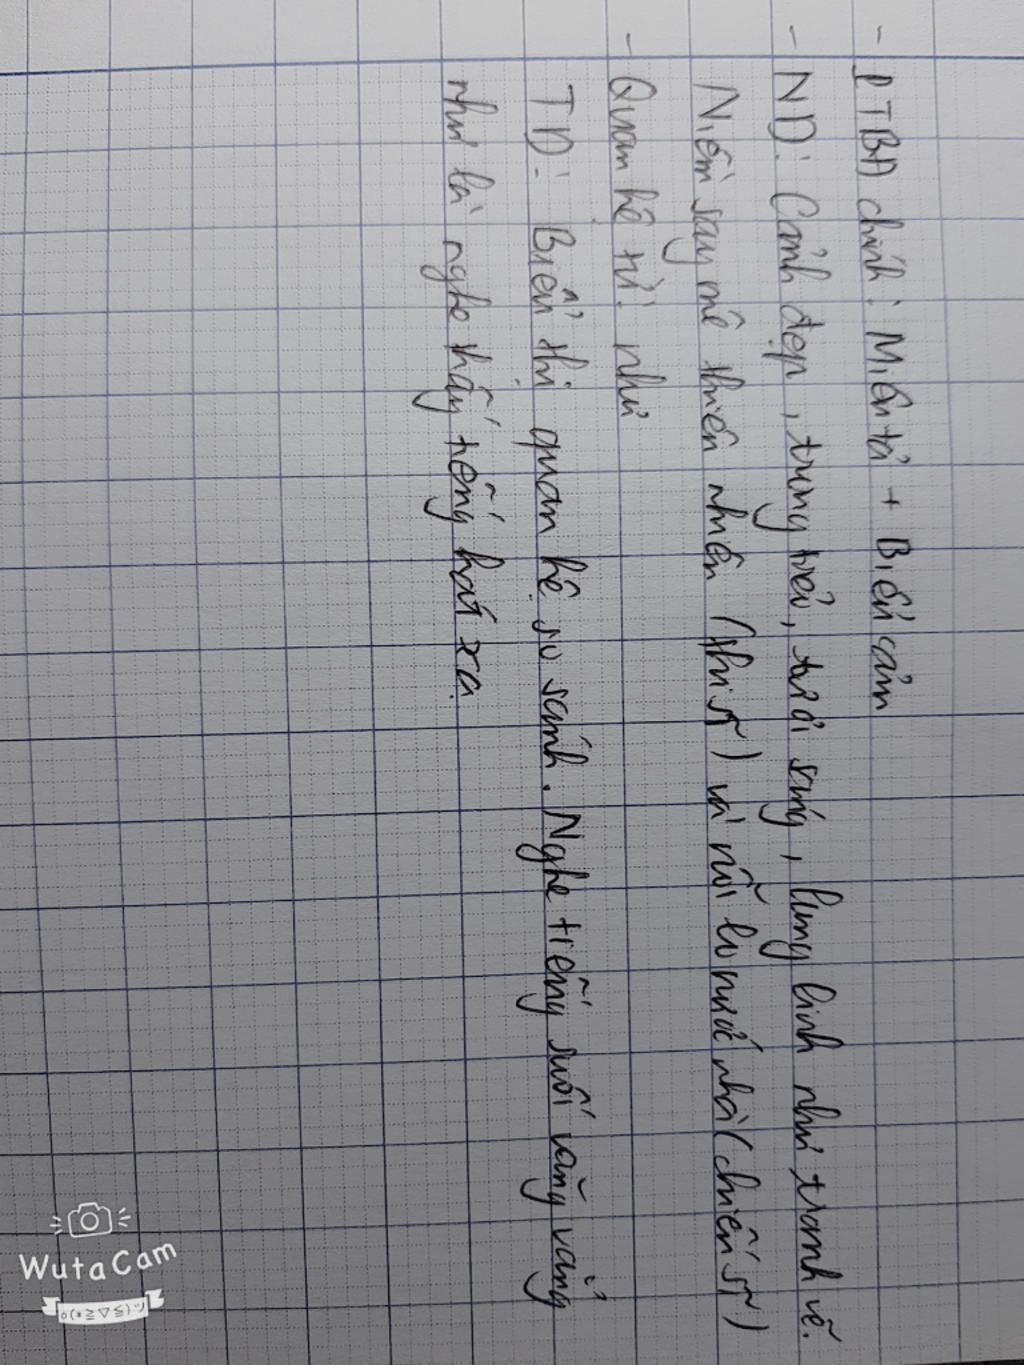 - PTBĐ chính: Miêu tả + Biểu cảm
- ND: Cảnh đẹp, trong trẻo, tươi sáng, lung linh như tranh vẽ.
Niềm say mê thiên nhiên (thi sĩ) và nỗi lo nước nhà (chiến sĩ)
- Quan hệ từ: như
TD: Biểu thị quan hệ so sánh. Nghe tiếng suối văng vẳng
như là nghe thấy tiếng hát xa.
WutaCam